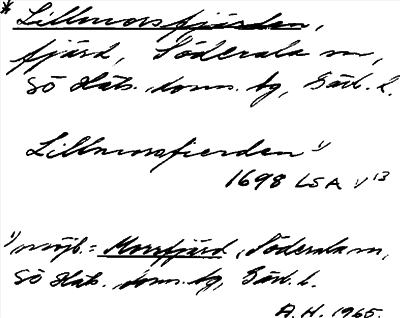 * Lillmorsfjärden,
fjärd, Söderala sn,
SÖ Häls. doms. bg, Gävl. l.
Lillmorsfierden 1)
1698 LSA V 13
1) möjl. = Morsfjärd, Söderala sn,
SÖ Häls. doms. bg, Gävl. l.
A.H. 1965.